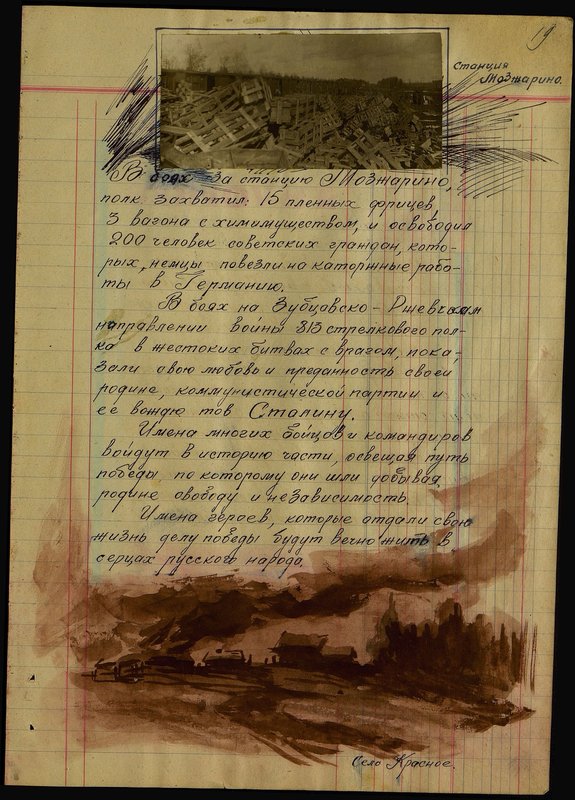 19
Станция
Мозжарино.
В боях за станцию Мозжарино,
полк захватил: 15 пленных фрицев,
3 вагона с химимуществом, и освободил
200 человек советских граждан, кото-
рых, немцы повезли на каторжные рабо-
ты в Германию.
В боях на Зубцовско-Ржевском
направлении войны 813 стрелкового пол-
ка в жестоких битвах с врагом, пока-
зали свою любовь и преданность своей
родине, коммунистической партии и
ее вождю тов Сталину.
Имена многих бойцов и командиров
войдут в историю части, освещая путь
победы по которому они шли добывая,
родине свободу и независимость.
Имена героев, которые отдали свою
жизнь делу победы будут вечно жить в
серцах русского народа.
Село Красное.